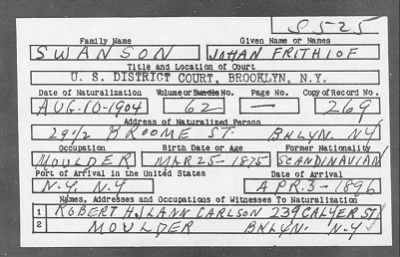 S525
Family Name Given Name or Names
SWANSON JOHAN FRITHIOF
Title and Location of Court
U. S. DISTRICT COURT, BROOKLYN, N.Y.
Date of Naturalization Volume or Bundle No. Page No. Copy of Record No.
AUG. 10-1904 62 — 269
Address of Naturalized Person
29½ BROOME ST. BKLYN. NY
Occupation Birth Date or Age Former Nationality
MOULDER MAR 25-1875 SCANDINAVIAN
Port of Arrival in the United States Date of Arrival
N.Y. N.Y APR. 3-1896
Names, Addresses and Occupations of Witnesses To Naturalization
1 ROBERT CARLSON 239 CALYER ST
2 MOULDER BKLYN. N.Y